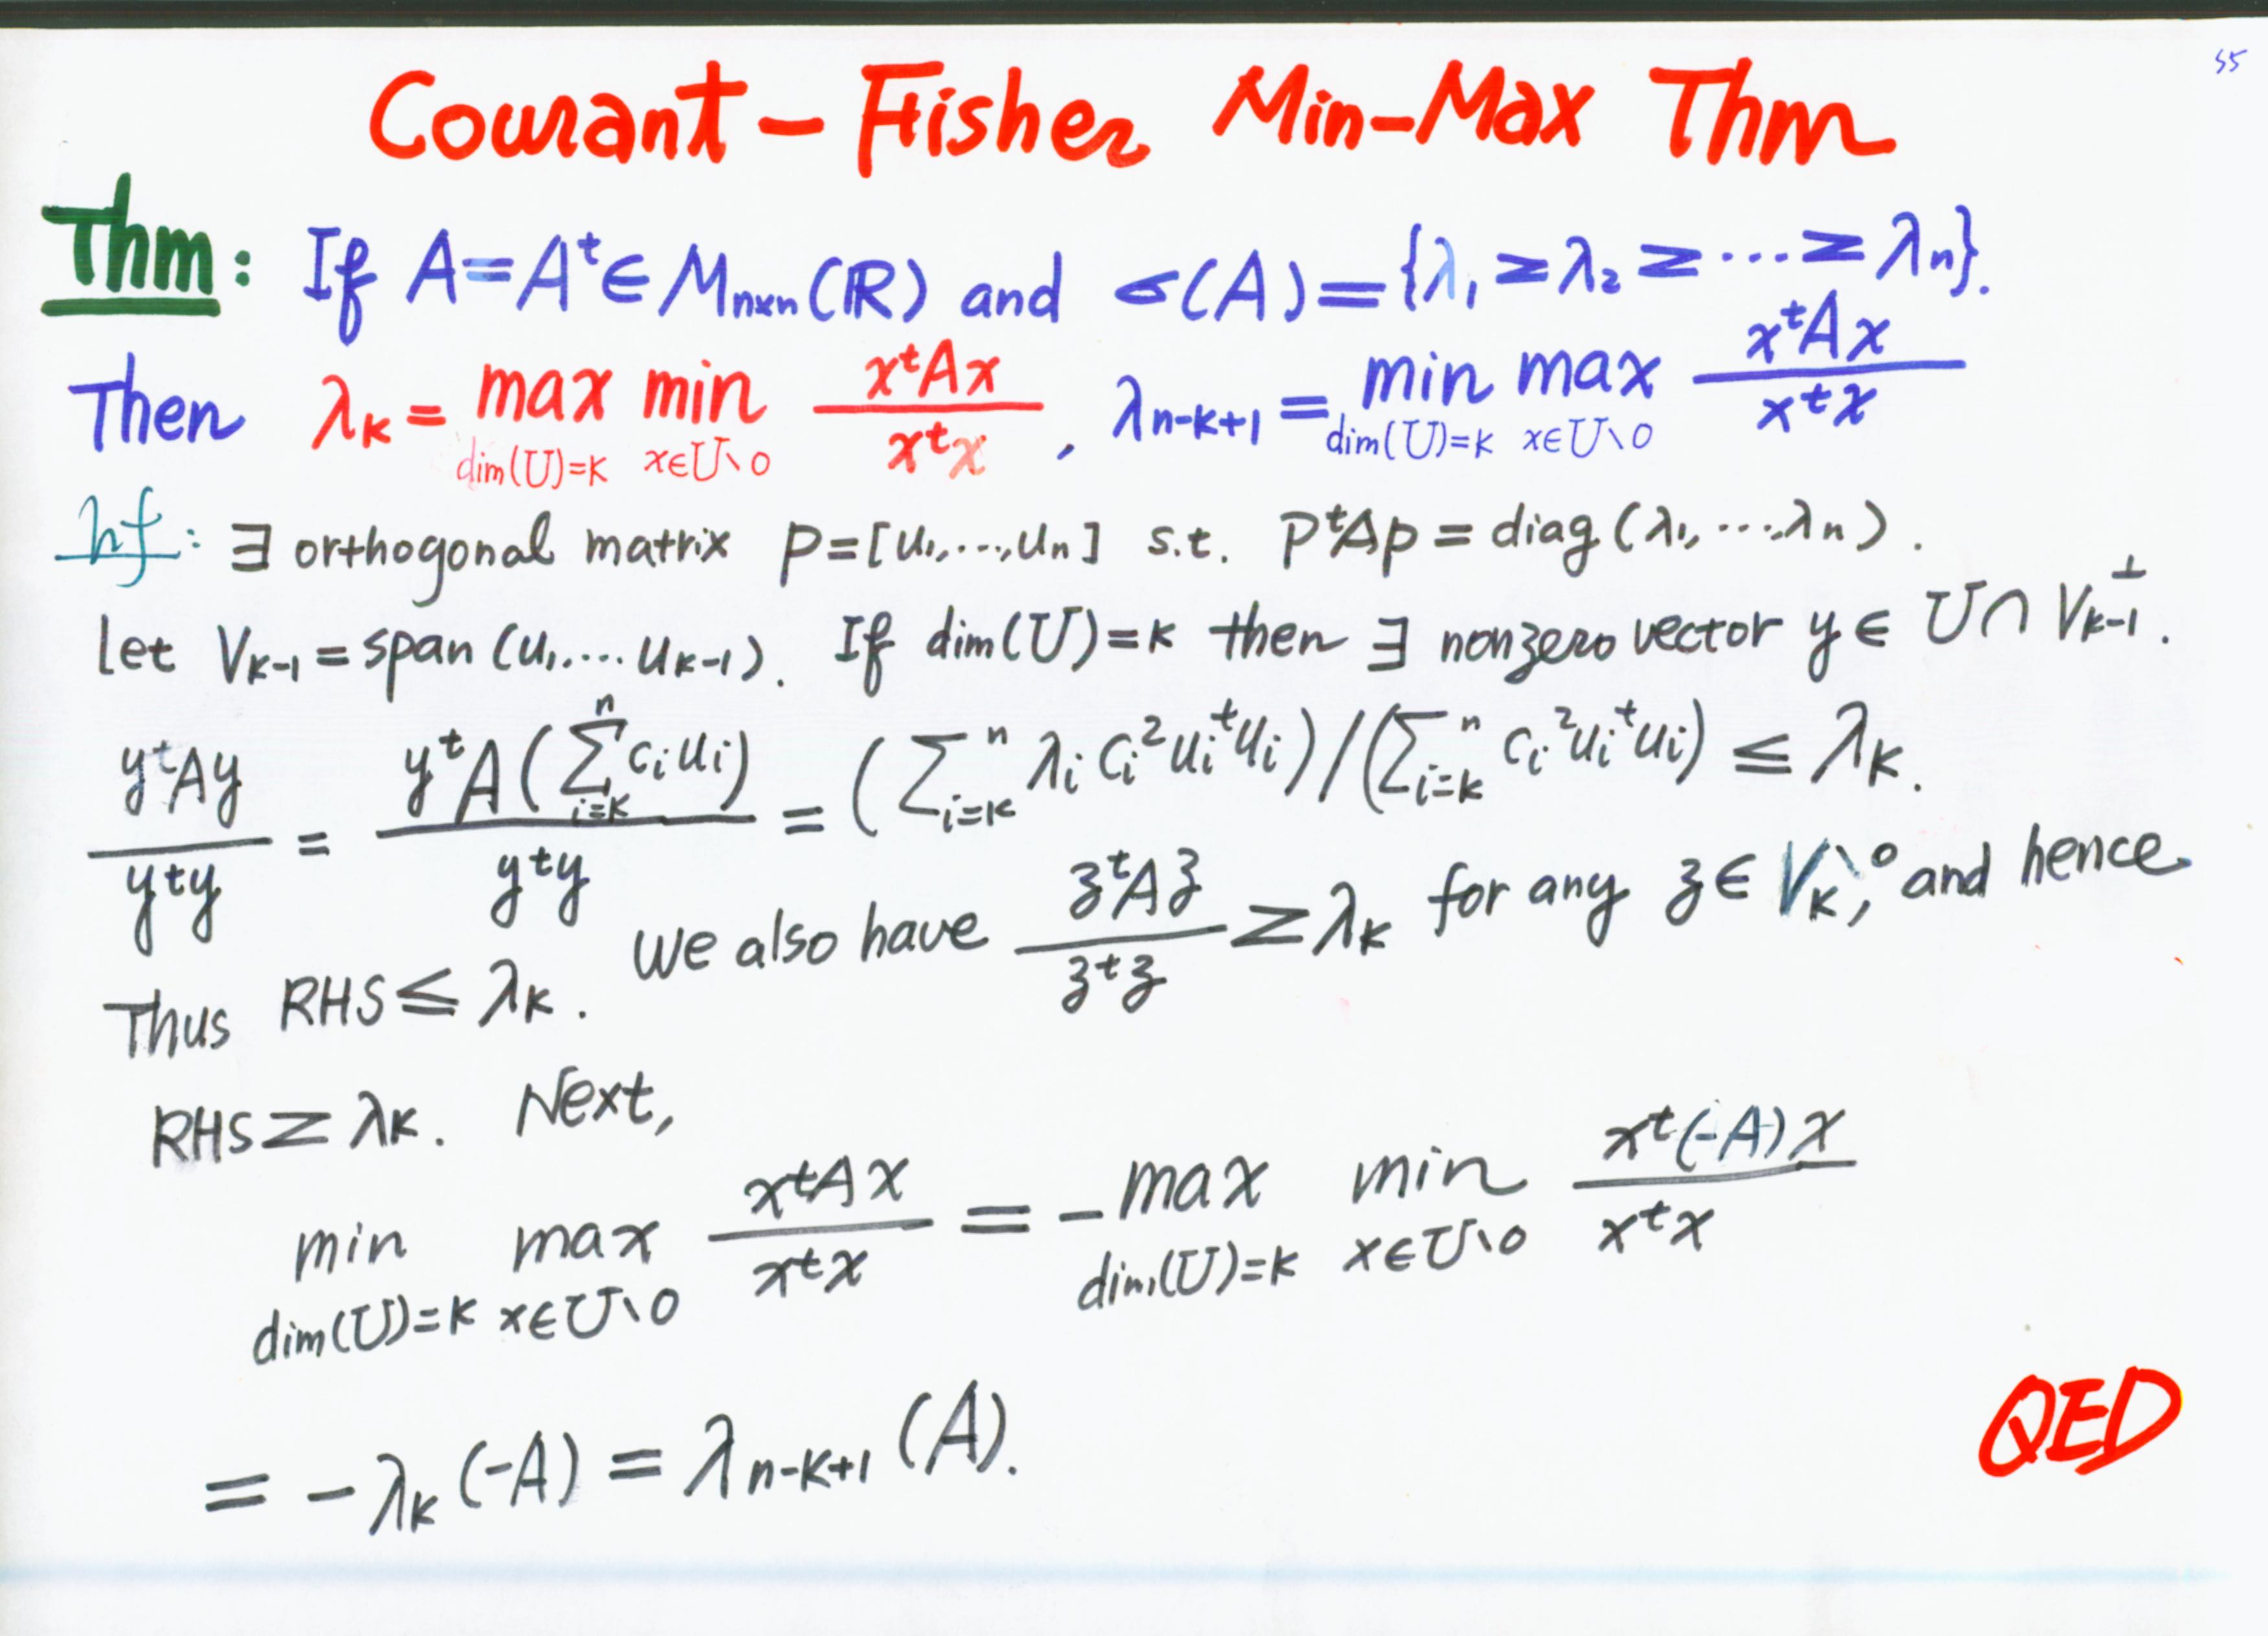 55
Courant-Fisher Min-Max Thm
Thm: If A=Aᵗ∈Mₙₓₙ(ℝ) and σ(A)={λ₁≥λ₂≥⋯≥λₙ}.
Then λₖ = max_{dim(U)=k} min_{x∈U\0} xᵗAx / xᵗx , λₙ₋ₖ₊₁ = min_{dim(U)=k} max_{x∈U\0} xᵗAx / xᵗx
pf: ∃ orthogonal matrix P=[u₁,...,uₙ] s.t. PᵗAP = diag(λ₁,...,λₙ).
Let Vₖ₋₁ = span(u₁,...uₖ₋₁). If dim(U)=k then ∃ nonzero vector y ∈ U∩Vₖ₋₁^⊥.
yᵗAy / yᵗy = yᵗA(∑_{i=k}^n cᵢuᵢ) / yᵗy = (∑_{i=k}^n λᵢcᵢ²uᵢᵗuᵢ)/(∑_{i=k}^n cᵢ²uᵢᵗuᵢ) ≤ λₖ.
Thus RHS ≤ λₖ. We also have zᵗAz / zᵗz ≥ λₖ for any z∈Vₖ\0, and hence
RHS ≥ λₖ. Next,
min_{dim(U)=k} max_{x∈U\0} xᵗAx / xᵗx = - max_{dim(U)=k} min_{x∈U\0} xᵗ(-A)x / xᵗx
= -λₖ(-A) = λₙ₋ₖ₊₁(A).
QED